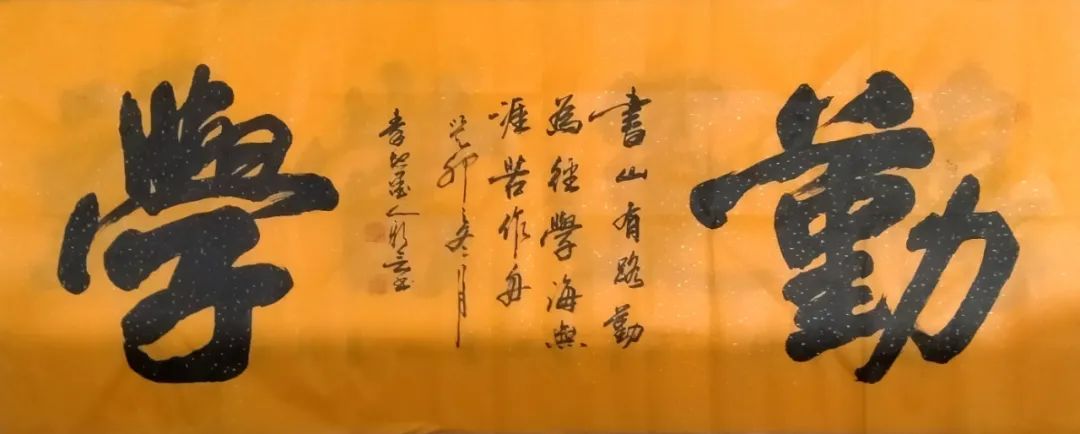 勤
書山有路勤
為徑學海無
涯苦作舟
癸卯冬月
學